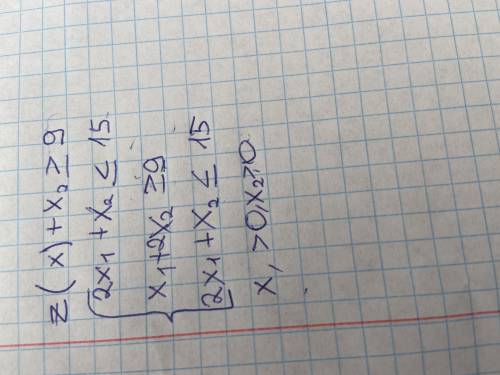 z(x)+x₂≥9
2x₁+x₂≤15
x₁+2x₂≥9
2x₁+x₂≤15
x₁>0,x₂>0